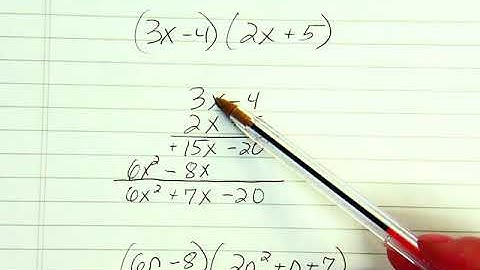 (3x-4)(2x+5)
3x-4
2x
+15x-20
6x²-8x
6x²+7x-20
(6n-8)(2n²+n+7)